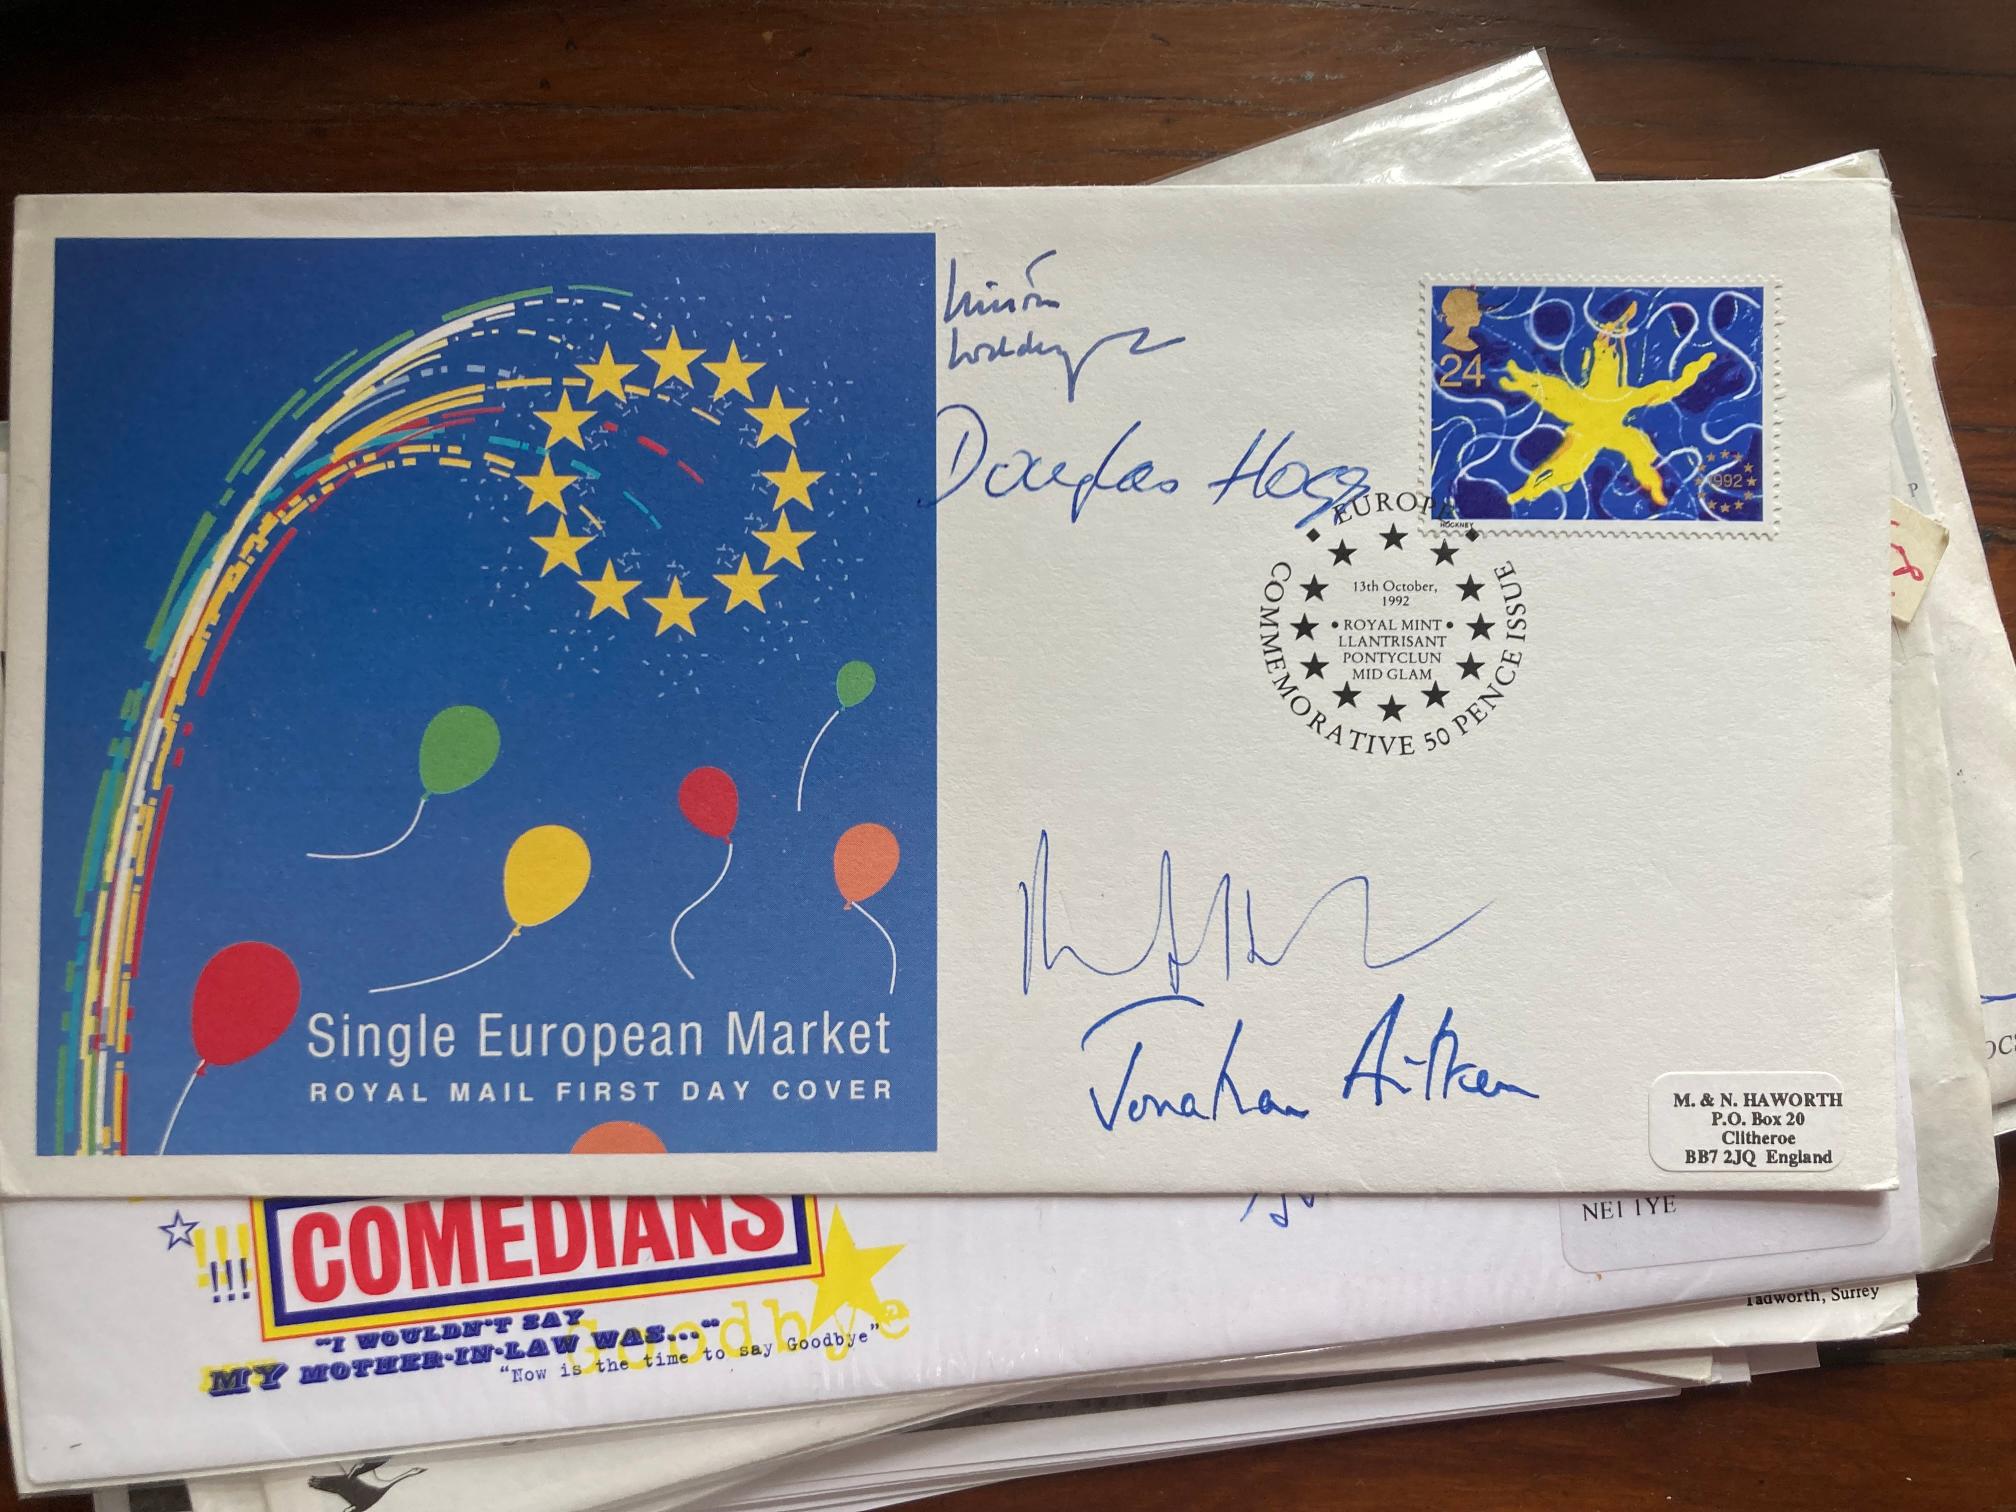 Douglas Hogg
24
1992
HOCKNEY
EUROPE
13th October,
1992
• ROYAL MINT •
LLANTRISANT
PONTYCLUN
MID GLAM
COMMEMORATIVE 50 PENCE ISSUE
Single European Market
ROYAL MAIL FIRST DAY COVER
Jonathan Aitken
M. & N. HAWORTH
P.O. Box 20
Clitheroe
BB7 2JQ England
COMEDIANS
NE1 1YE
!!!
!!!
"I WOULDN'T SAY
MY MOTHER-IN-LAW WAS..."
Goodbye
"Now is the time to say Goodbye"
Tadworth, Surrey
P